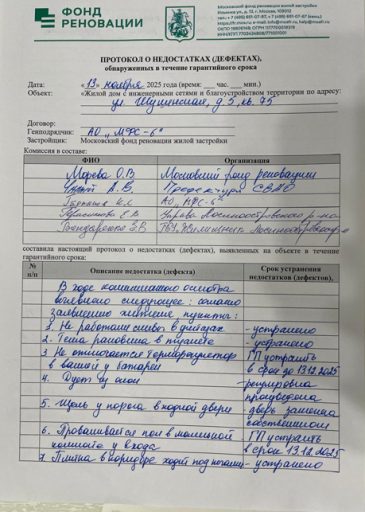 ФОНД
РЕНОВАЦИИ
Московский фонд реновации жилой застройки
ПРОТОКОЛ О НЕДОСТАТКАХ (ДЕФЕКТАХ),
обнаруженных в течение гарантийного срока
Дата: «13» ноября 2025 года (время: ___ час. ___ мин.)
Объект: «Жилой дом с инженерными сетями и благоустройством территории по адресу:
ул. Шушенская, д. 5, кв. 75
Договор:
Генподрядчик: АО „МФС-6“
Застройщик: Московский фонд реновации жилой застройки
Комиссия в составе:
ФИО Организация
О.В Московский фонд реновации
А.В. Префектура СВАО
АО, МФС-6"
Герасимова Е.В Управа Лосиноостровского р-на
Бондаренко З.В ГБУ Жилищник Лосиноостровского
составила настоящий протокол о недостатках (дефектах), выявленных на объекте в течение
гарантийного срока:
№ п/п Описание недостатка (дефекта) Срок устранения недостатков (дефектов),
В ходе комиссионного осмотра
выявлено следующее: согласно
заявлению жителя, пункты:
1. Не работали смыв - устранено
2. Течь раковина в туалете - устранено
3 Не отличается терморегулятор ГП устранить
в ванной у батареи в срок до 13.12.2025
4. Дует из окон - регулировка
произведена
5. Щель у порога входной двери - дверь заменена
собственником
6. Проваливается пол в маленькой ГП устранить
комнате у входа в срок 13.12.2025
7. Плитка в коридоре ходит под ногами - устранено